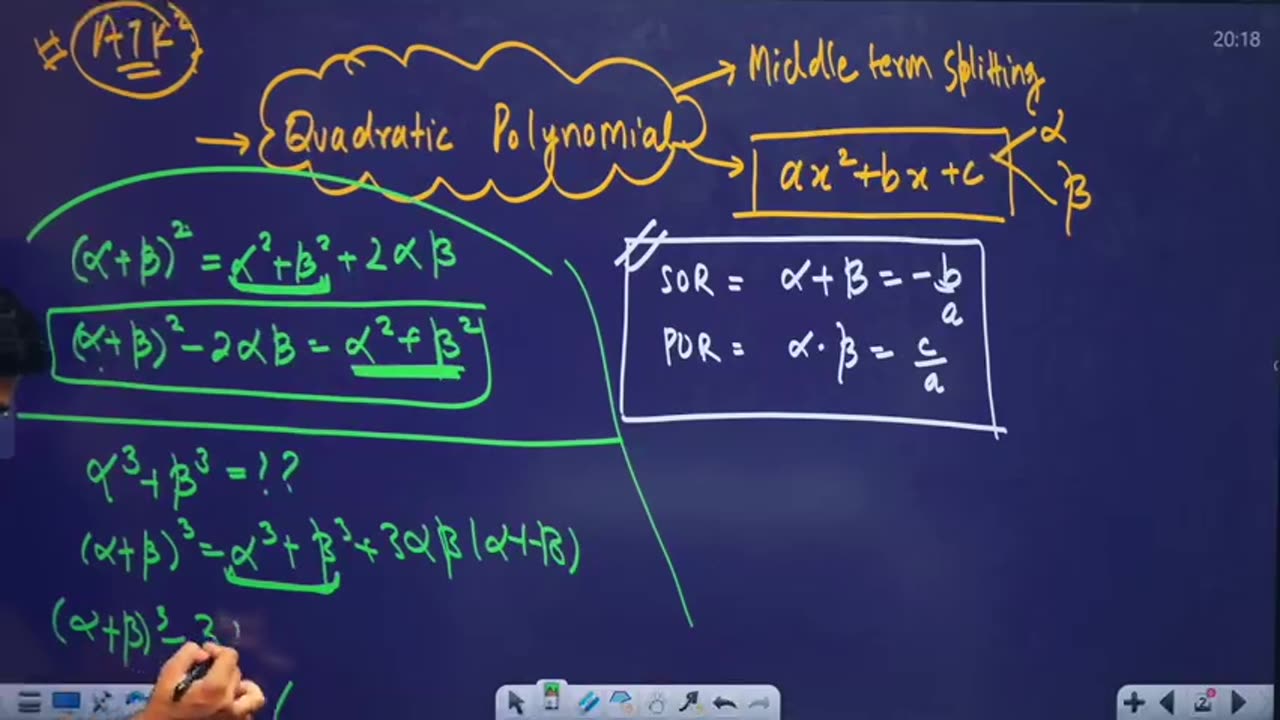 # ATK²
20:18
Quadratic Polynomial
Middle term splitting
ax²+bx+c
α
β
(α+β)² = α²+β² + 2αβ
(α+β)² - 2αβ = α² + β²
SOR = α+β = -b/a
POR = α·β = c/a
α³+β³ = !?
(α+β)³ = α³ + β³ + 3αβ(α+β)
(α+β)³ - 3
2